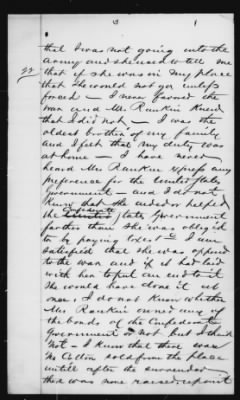 3
that I was not going into the
army and she used to tell me
that if she was in my place
that she would not go unless
forced — I never favored the
war and Mrs. Rankin knew
that I did not — I was the
oldest brother of my family
and I felt that my duty was
at home — I have never
heard Mrs. Rankin express any
preference for the United States
Government — and I do not
know that she aided or helped
Confederate
the United States Government
farther than she was oblig'd
to by paying taxes — I am
satisfied that she was opposed
to the war and if it had laid
with her to put an end to it
She would have done it at
once, I do not know whether
Mrs. Rankin owned any of
the bonds of the Confederate
Government or not but I think
not — I know that there was
no Cotton sold from the place
untill after the surrender
there was none raised except